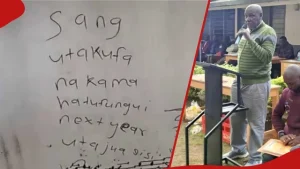 Sang
utakufa
na kama
hatufungui
next year
utajua